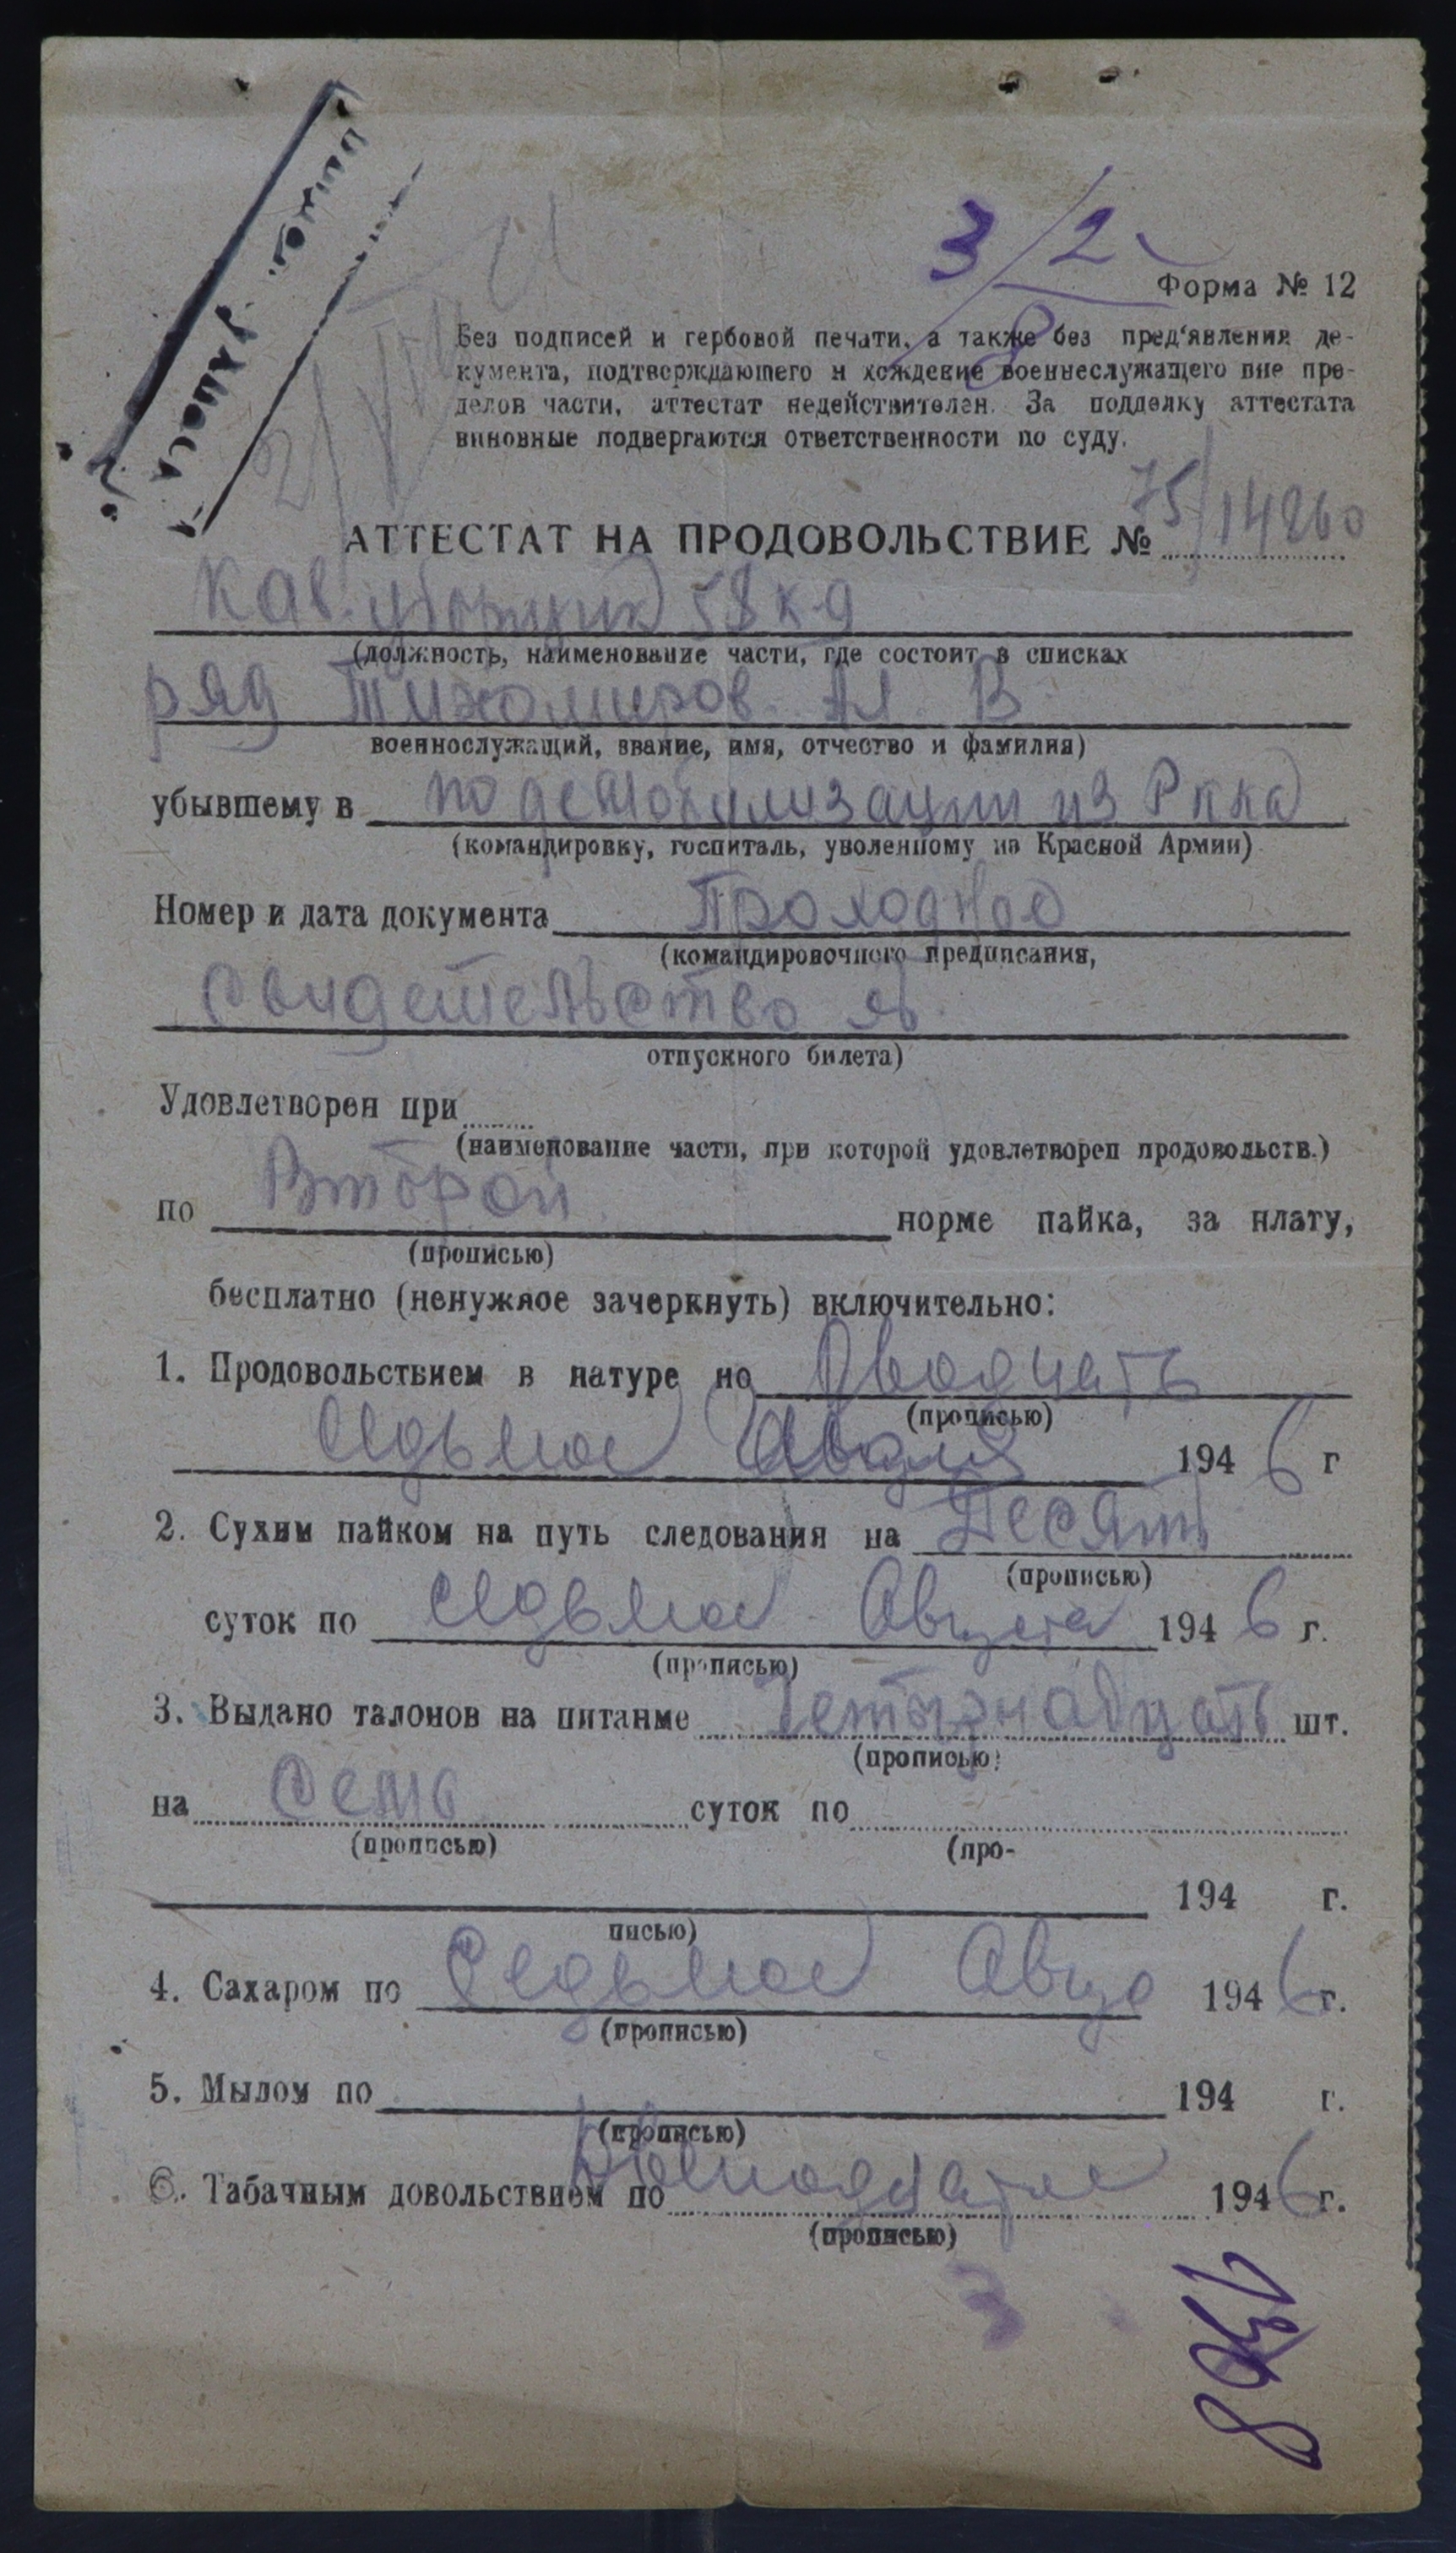 3/2
Форма № 12
Без подписей и гербовой печати, а также без пред'явления де-
кумента, подтверждающего н хождение военнеслужащего вне пре-
делов части, аттестат недействителен. За подделку аттестата
виновные подвергаются ответственности по суду.
75/14260
АТТЕСТАТ НА ПРОДОВОЛЬСТВИЕ №
Кав. 58 к.д
(должность, наименование части, где состоит в списках
ряд Тихомиров Ал. В
военнослужащий, звание, имя, отчество и фамилия)
убывшему в по демобилизации из Ркка
(командировку, госпиталь, уволенному из Красной Армии)
Номер и дата документа Проходное
(командировочного предписания,
свидетельство
отпускного билета)
Удовлетворен при
(наименование части, при которой удовлетворен продовольств.)
по Второй норме пайка, за плату,
(прописью)
бесплатно (ненужное зачеркнуть) включительно:
1. Продовольствием в натуре по Двадцать
(прописью)
седьмое 194 6 г
2. Сухим пайком на путь следования на Десять
(прописью)
суток по седьмое Августа 194 6 г.
(прописью)
3. Выдано талонов на питанме Четырнадцать шт.
(прописью)
на Семь суток по
(прописью) (про-
194 г.
писью)
4. Сахаром по Седьмое Авгу 194 6 г.
(прописью)
5. Мылом по 194 г.
(прописью)
6. Табачным довольствием по 194 6 г.
(прописью)